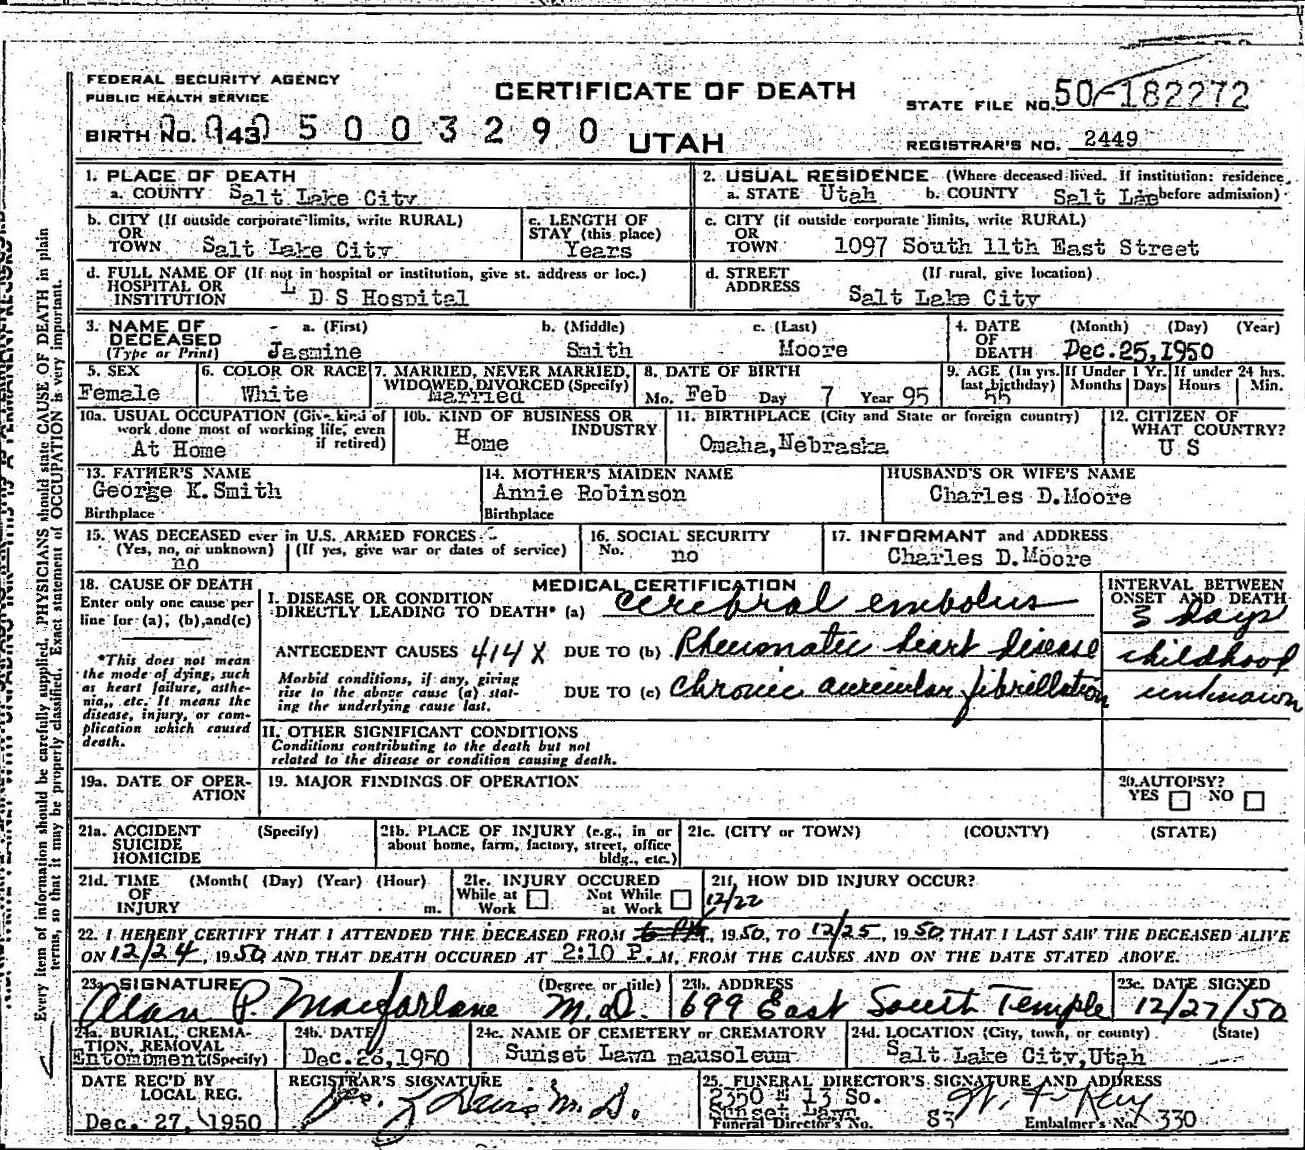 FEDERAL SECURITY AGENCY
PUBLIC HEALTH SERVICE
CERTIFICATE OF DEATH
STATE FILE NO. 50-182272
BIRTH NO. 143 5 0 0 3 2 9 0
UTAH
REGISTRAR'S NO. 2449
1. PLACE OF DEATH
a. COUNTY Salt Lake City
2. USUAL RESIDENCE (Where deceased lived. If institution: residence before admission)
a. STATE Utah b. COUNTY Salt Lae
b. CITY (If outside corporate limits, write RURAL)
OR
TOWN Salt Lake City
c. LENGTH OF
STAY (this place)
Years
c. CITY (if outside corporate limits, write RURAL)
OR
TOWN 1097 South 11th East Street
d. FULL NAME OF (If not in hospital or institution, give st. address or loc.)
HOSPITAL OR
INSTITUTION L D S Hospital
d. STREET (If rural, give location)
ADDRESS Salt Lake City
3. NAME OF a. (First) b. (Middle) c. (Last)
DECEASED
(Type or Print) Jasmine Smith Moore
4. DATE (Month) (Day) (Year)
OF
DEATH Dec.25,1950
5. SEX
Female
6. COLOR OR RACE
White
7. MARRIED, NEVER MARRIED,
WIDOWED, DIVORCED (Specify)
Married
8. DATE OF BIRTH
Mo. Feb Day 7 Year 95
9. AGE (In yrs. last birthday) 55
If Under 1 Yr. Months Days
If under 24 hrs. Hours Min.
10a. USUAL OCCUPATION (Give kind of
work done most of working life, even
if retired)
At Home
10b. KIND OF BUSINESS OR
INDUSTRY
Home
11. BIRTHPLACE (City and State or foreign country)
Omaha,Nebraska
12. CITIZEN OF
WHAT COUNTRY?
U S
13. FATHER'S NAME
George K.Smith
Birthplace
14. MOTHER'S MAIDEN NAME
Annie Robinson
Birthplace
HUSBAND'S OR WIFE'S NAME
Charles D.Moore
15. WAS DECEASED ever in U.S. ARMED FORCES
(Yes, no, or unknown) (If yes, give war or dates of service)
no
16. SOCIAL SECURITY
No. no
17. INFORMANT and ADDRESS
Charles D.Moore
18. CAUSE OF DEATH
Enter only one cause per
line for (a), (b),and(c)
*This does not mean
the mode of dying, such
as heart failure, asthe-
nia,, etc. It means the
disease, injury, or com-
plication which caused
death.
MEDICAL CERTIFICATION
I. DISEASE OR CONDITION
DIRECTLY LEADING TO DEATH* (a) Cerebral embolus
INTERVAL BETWEEN
ONSET AND DEATH
3 days
ANTECEDENT CAUSES 414X DUE TO (b) Rheumatic heart disease childhood
Morbid conditions, if any, giving
rise to the above cause (a) stat-
ing the underlying cause last.
DUE TO (c) Chronic auricular fibrillation unknown
II. OTHER SIGNIFICANT CONDITIONS
Conditions contributing to the death but not
related to the disease or condition causing death.
19a. DATE OF OPER-
ATION
19. MAJOR FINDINGS OF OPERATION
20. AUTOPSY?
YES NO
21a. ACCIDENT (Specify)
SUICIDE
HOMICIDE
21b. PLACE OF INJURY (e.g., in or
about home, farm, factory, street, office
bldg., etc.)
21c. (CITY or TOWN) (COUNTY) (STATE)
21d. TIME (Month( (Day) (Year) (Hour)
OF
INJURY m.
21e. INJURY OCCURED
While at Work Not While at Work
21f. HOW DID INJURY OCCUR?
12/22
22. I HEREBY CERTIFY THAT I ATTENDED THE DECEASED FROM , 1950, TO 12/25, 1950, THAT I LAST SAW THE DECEASED ALIVE
ON 12/24, 1950, AND THAT DEATH OCCURED AT 2:10 P.M. FROM THE CAUSES AND ON THE DATE STATED ABOVE.
23a. SIGNATURE (Degree or title)
Alan P. Macfarlane M.D.
23b. ADDRESS
699 East South Temple
23c. DATE SIGNED
12/27/50
24a. BURIAL, CREMA-
TION, REMOVAL
Entombment (Specify)
24b. DATE
Dec.28,1950
24c. NAME OF CEMETERY or CREMATORY
Sunset Lawn mausoleum
24d. LOCATION (City, town, or county) (State)
Salt Lake City,Utah
DATE REC'D BY
LOCAL REG.
Dec. 27, 1950
REGISTRAR'S SIGNATURE
M.D.
25. FUNERAL DIRECTOR'S SIGNATURE AND ADDRESS
2350 E 13 So.
Sunset Lawn
Funeral Director's No. 83 Embalmer's No. 330
Every item of information should be carefully supplied. PHYSICIANS should state CAUSE OF DEATH in plain
terms, so that it may be properly classified. Exact statement of OCCUPATION is very important.